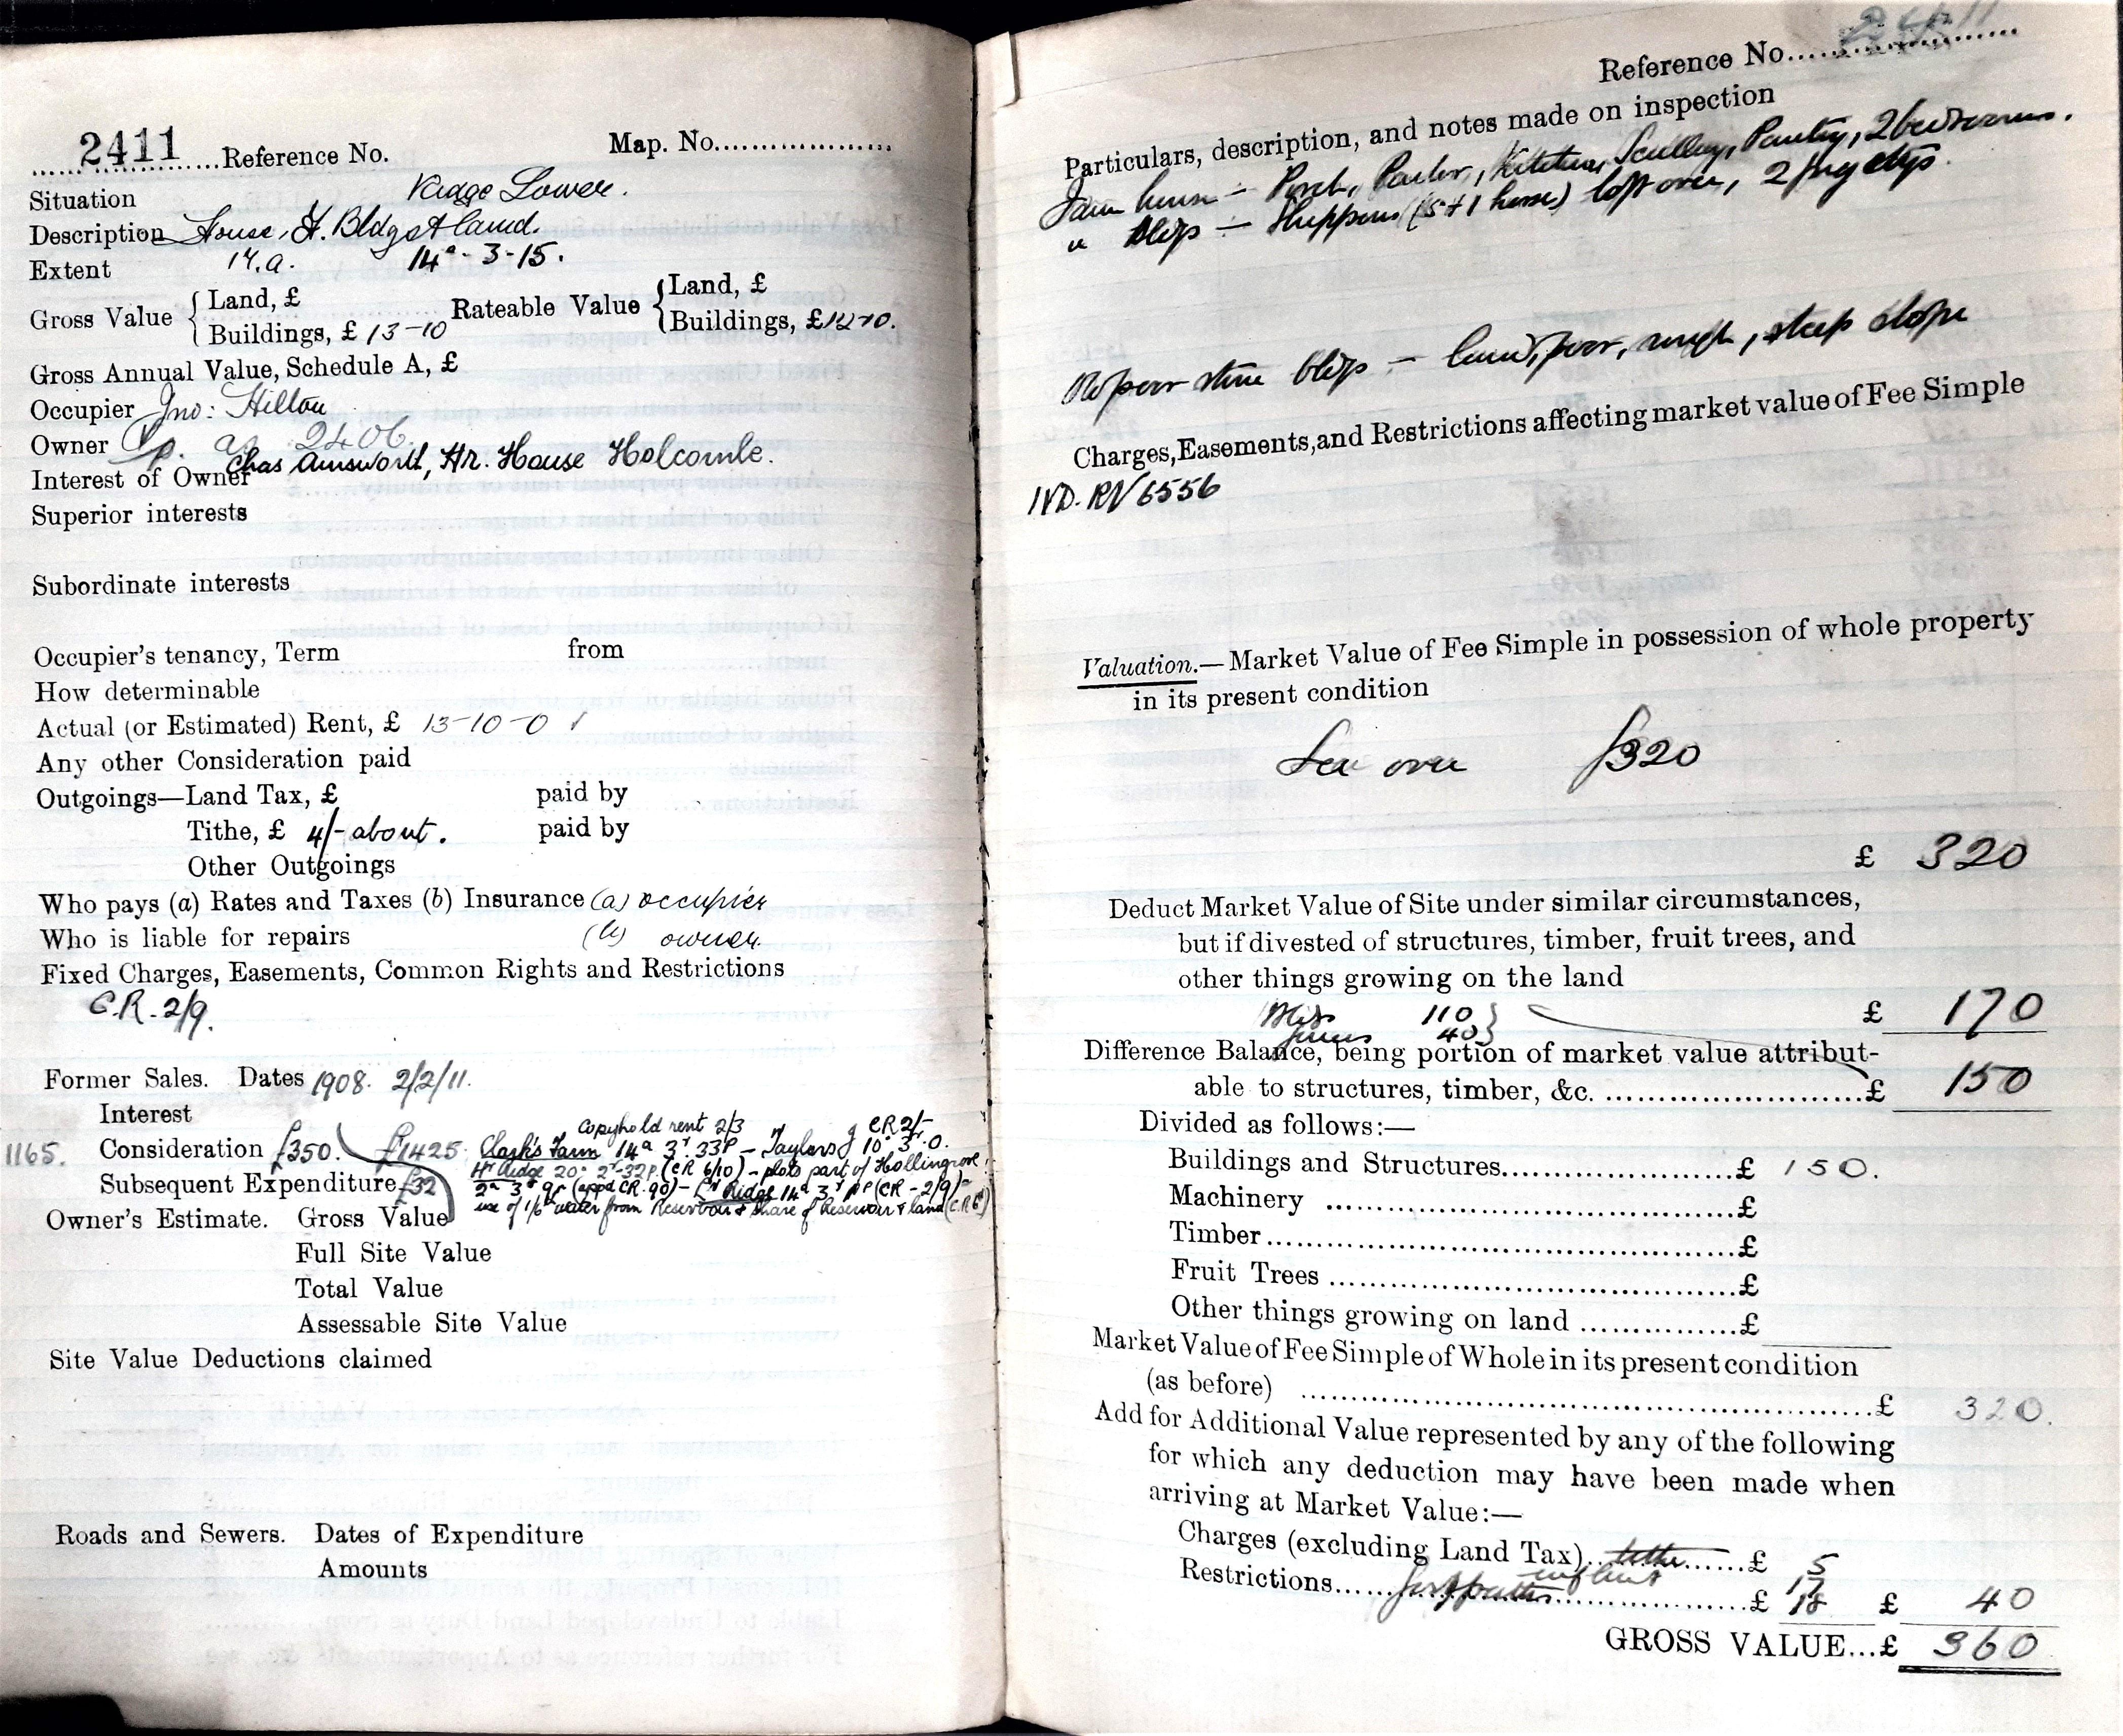 2411 Reference No. Map. No.
Situation Ridge Lower.
Description House, F. Bldgs & land.
Extent 14.a. 14a - 3 - 15.
Gross Value { Land, £ Rateable Value { Land, £
Buildings, £ 13-10 Buildings, £12-10.
Gross Annual Value, Schedule A, £
Occupier Jno: Hilton
Owner as 2406.
Chas Ainsworth, Hr. House Holcombe.
Interest of Owner
Superior interests
Subordinate interests
Occupier's tenancy, Term from
How determinable
Actual (or Estimated) Rent, £ 13-10-0
Any other Consideration paid
Outgoings—Land Tax, £ paid by
Tithe, £ 4/- about. paid by
Other Outgoings
Who pays (a) Rates and Taxes (b) Insurance (a) occupier
Who is liable for repairs (b) owner.
Fixed Charges, Easements, Common Rights and Restrictions
C.R. 2/9.
Former Sales. Dates 1908. 2/2/11.
Interest
Copyhold rent 2/3 CR 2/-
1165. Consideration £350. £1425. Clash's Farm 14a 3r 33p - Taylors 10a 3r 0.
Hr Ridge 20a 2r 32p. (CR 6/10) - plots part of Hollingrove
Subsequent Expenditure £32 2a 3r 9p (appd CR. 90) - Lr Ridge 14a 3r (CR - 2/9) =
use of 1/6th water from Reservoir & share of Reservoir & land (C.R 6d)
Owner's Estimate. Gross Value
Full Site Value
Total Value
Assessable Site Value
Site Value Deductions claimed
Roads and Sewers. Dates of Expenditure
Amounts
2411
Reference No.
Particulars, description, and notes made on inspection
Farm house - Porch, Parlor, Kitchen, Scullery, Pantry, 2 bedrooms.
" Bldgs - Shippons (15 + 1 horse) loft over, 2
poor stone bldgs - land, poor, rough, steep slope
Charges, Easements, and Restrictions affecting market value of Fee Simple
IVD. RV 6556
Valuation.—Market Value of Fee Simple in possession of whole property
in its present condition
See over £320
£ 320
Deduct Market Value of Site under similar circumstances,
but if divested of structures, timber, fruit trees, and
other things growing on the land
Bldgs 110 } £ 170
40 }
Difference Balance, being portion of market value attribut-
able to structures, timber, &c. £ 150
Divided as follows:—
Buildings and Structures £ 150.
Machinery £
Timber £
Fruit Trees £
Other things growing on land £
Market Value of Fee Simple of Whole in its present condition
(as before) £ 320.
Add for Additional Value represented by any of the following
for which any deduction may have been made when
arriving at Market Value:—
Charges (excluding Land Tax) tithe £ 5
17
Restrictions footpaths £ 18 £ 40
GROSS VALUE...£ 360